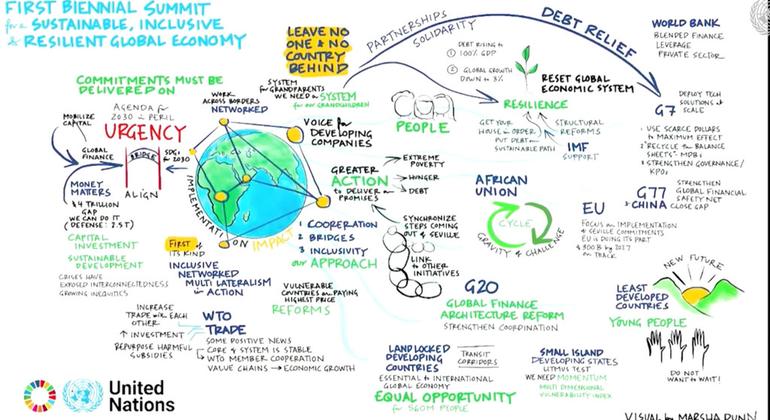 FIRST BIENNIAL SUMMIT
for a SUSTAINABLE, INCLUSIVE
& RESILIENT GLOBAL ECONOMY
COMMITMENTS MUST BE
DELIVERED ON
AGENDA for
2030 in PERIL
URGENCY
MOBILIZE
CAPITAL
GLOBAL
FINANCE
BRIDGE
SDGs
for 2030
ALIGN
MONEY
MATTERS
$4 TRILLION
GAP
WE CAN DO IT
(DEFENSE: 2.5T)
CAPITAL
INVESTMENT
SUSTAINABLE
DEVELOPMENT
CRISES HAVE
EXPOSED INTERCONNECTEDNESS
GROWING INEQUITIES
FIRST of
ITS KIND
INCLUSIVE
NETWORKED
MULTI LATERALISM
in ACTION
INCREASE
TRADE with EACH
OTHER
↑ INVESTMENT
REPURPOSE HARMFUL
SUBSIDIES
WTO
TRADE
SOME POSITIVE NEWS
CORE of SYSTEM IS STABLE
WTO MEMBER COOPERATION
VALUE CHAINS → ECONOMIC GROWTH
WORK
ACROSS BORDERS
NETWORKED
IMPLEMENTATION IMPACT
LEAVE NO
ONE & NO
COUNTRY
BEHIND
SYSTEM
for GRANDPARENTS
WE NEED a SYSTEM
for OUR GRANDCHILDREN
VOICE for
DEVELOPING
COMPANIES
PEOPLE
GREATER
ACTION
to DELIVER on
PROMISES
EXTREME
POVERTY
HUNGER
DEBT
1 COOPERATION
2 BRIDGES
3 INCLUSIVITY
our APPROACH
VULNERABLE
COUNTRIES are PAYING
HIGHEST PRICE
REFORMS
SYNCHRONIZE
STEPS COMING
OUT of SEVILLE
LINK
to OTHER
INITIATIVES
PARTNERSHIPS
SOLIDARITY
DEBT RELIEF
DEBT RISING to
① 100% GDP
② GLOBAL GROWTH
DOWN to 3%
RESET GLOBAL
ECONOMIC SYSTEM
RESILIENCE
GET YOUR
HOUSE in ORDER,
PUT DEBT on
SUSTAINABLE PATH
STRUCTURAL
REFORMS
IMF
SUPPORT
AFRICAN
UNION
CYCLE
GRAVITY of CHALLENGE
G20
GLOBAL FINANCE
ARCHITECTURE REFORM
STRENGTHEN COORDINATION
LAND LOCKED
DEVELOPING
COUNTRIES
TRANSIT
CORRIDORS
ESSENTIAL to INTERNATIONAL
GLOBAL ECONOMY
EQUAL OPPORTUNITY
for 580M PEOPLE
SMALL ISLAND
DEVELOPING STATES
LITMUS TEST
WE NEED MOMENTUM
MULTI DIMENSIONAL
VULNERABILITY INDEX
WORLD BANK
BLENDED FINANCE
LEVERAGE
PRIVATE SECTOR
G7
DEPLOY TECH
SOLUTIONS at
SCALE
1 USE SCARCE DOLLARS
to MAXIMUM EFFECT
2 RECYCLE the BALANCE
SHEETS - MDBs
3 STRENGTHEN GOVERNANCE/
KPOs
G77
& CHINA
STRENGTHEN
GLOBAL FINANCIAL
SAFETY NET
CLOSE GAP
EU
FOCUS on IMPLEMENTATION
of SEVILLE COMMITMENTS
EU is DOING ITS PART
$300B by 2027
ON TRACK
NEW FUTURE
LEAST
DEVELOPED
COUNTRIES
YOUNG PEOPLE
DO NOT
WANT to WAIT!
United
Nations
VISUAL by MARSHA DUNN